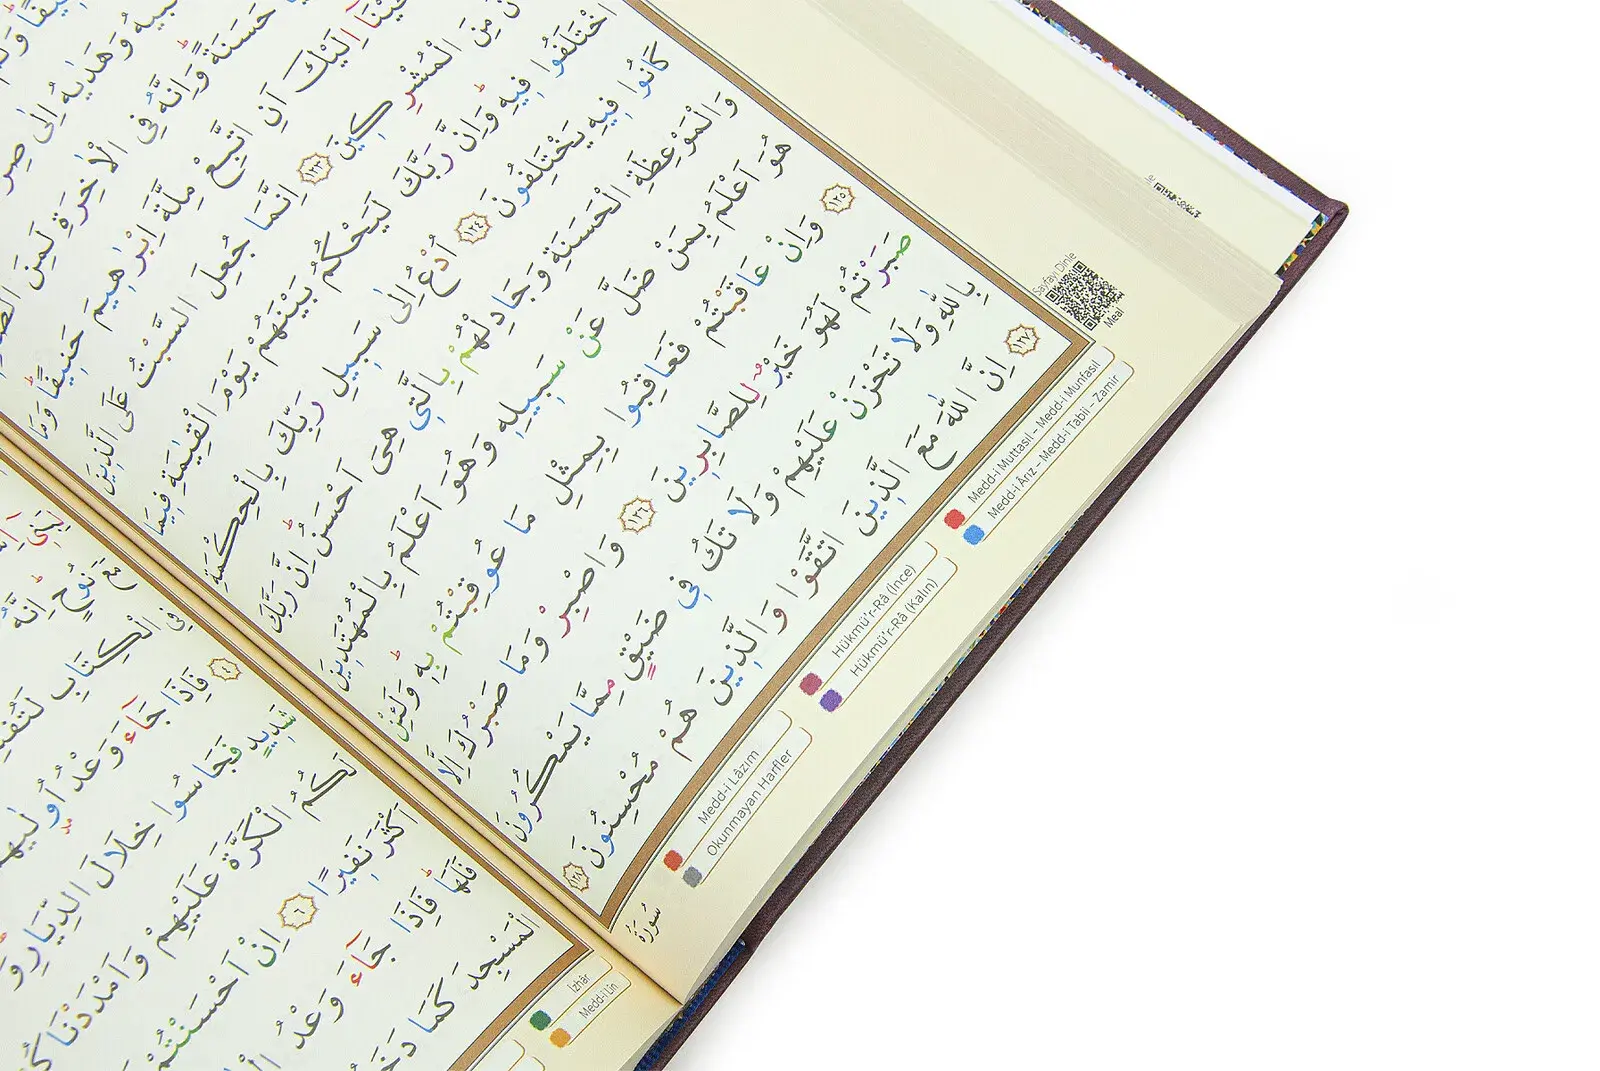 وَهَدٰيهُ اِلٰى
حَسَنَةً وَاِنَّهُ فِي الْاٰخِرَةِ لَمِنَ
اِلَيْكَ اَنِ اتَّبِعْ مِلَّةَ اِبْرٰهِيمَ حَنِيفًا وَمَا
مِنَ الْمُشْرِكِينَ ﴿١٢٣﴾ اِنَّمَا جُعِلَ السَّبْتُ عَلَى الَّذِينَ
اخْتَلَفُوا فِيهِ وَاِنَّ رَبَّكَ لَيَحْكُمُ بَيْنَهُمْ يَوْمَ الْقِيٰمَةِ فِيمَا
كَانُوا فِيهِ يَخْتَلِفُونَ ﴿١٢٤﴾ اُدْعُ اِلٰى سَبِيلِ رَبِّكَ بِالْحِكْمَةِ
وَالْمَوْعِظَةِ الْحَسَنَةِ وَجَادِلْهُمْ بِالَّتِي هِيَ اَحْسَنُ اِنَّ رَبَّكَ
هُوَ اَعْلَمُ بِمَنْ ضَلَّ عَنْ سَبِيلِهِ وَهُوَ اَعْلَمُ بِالْمُهْتَدِينَ
﴿١٢٥﴾ وَاِنْ عَاقَبْتُمْ فَعَاقِبُوا بِمِثْلِ مَا عُوقِبْتُمْ بِهِ وَلَئِنْ
صَبَرْتُمْ لَهُوَ خَيْرٌ لِلصَّابِرِينَ ﴿١٢٦﴾ وَاصْبِرْ وَمَا صَبْرُكَ اِلَّا
بِاللّٰهِ وَلَا تَحْزَنْ عَلَيْهِمْ وَلَا تَكُ فِي ضَيْقٍ مِمَّا يَمْكُرُونَ
﴿١٢٧﴾ اِنَّ اللّٰهَ مَعَ الَّذِينَ اتَّقَوْا وَالَّذِينَ هُمْ مُحْسِنُونَ ﴿١٢٨﴾
سُورَةُ
Sayfayı Dinle
Meal
Medd-i Muttasıl – Medd-i Munfasıl
Medd-i Ârız – Medd-i Tabii – Zamir
Hükmü'r-Râ (İnce)
Hükmü'r-Râ (Kalın)
Medd-i Lâzım
Okunmayan Harfler
مَعَ نُوحٍ اِنَّهُ
فِي الْكِتَابِ
﴿٤﴾ فَاِذَا جَٓاءَ وَعْدُ اُولٰيهُمَا
شَدِيدٍ فَجَاسُوا خِلَالَ الدِّيَارِ
لَكُمُ الْكَرَّةَ عَلَيْهِمْ وَاَمْدَدْنَا
اَكْثَرَ نَفِيرًا ﴿٦﴾ اِنْ اَحْسَنْتُمْ
فَلَهَا فَاِذَا جَٓاءَ وَعْدُ
الْمَسْجِدَ كَمَا
İzhâr
Medd-i Lîn